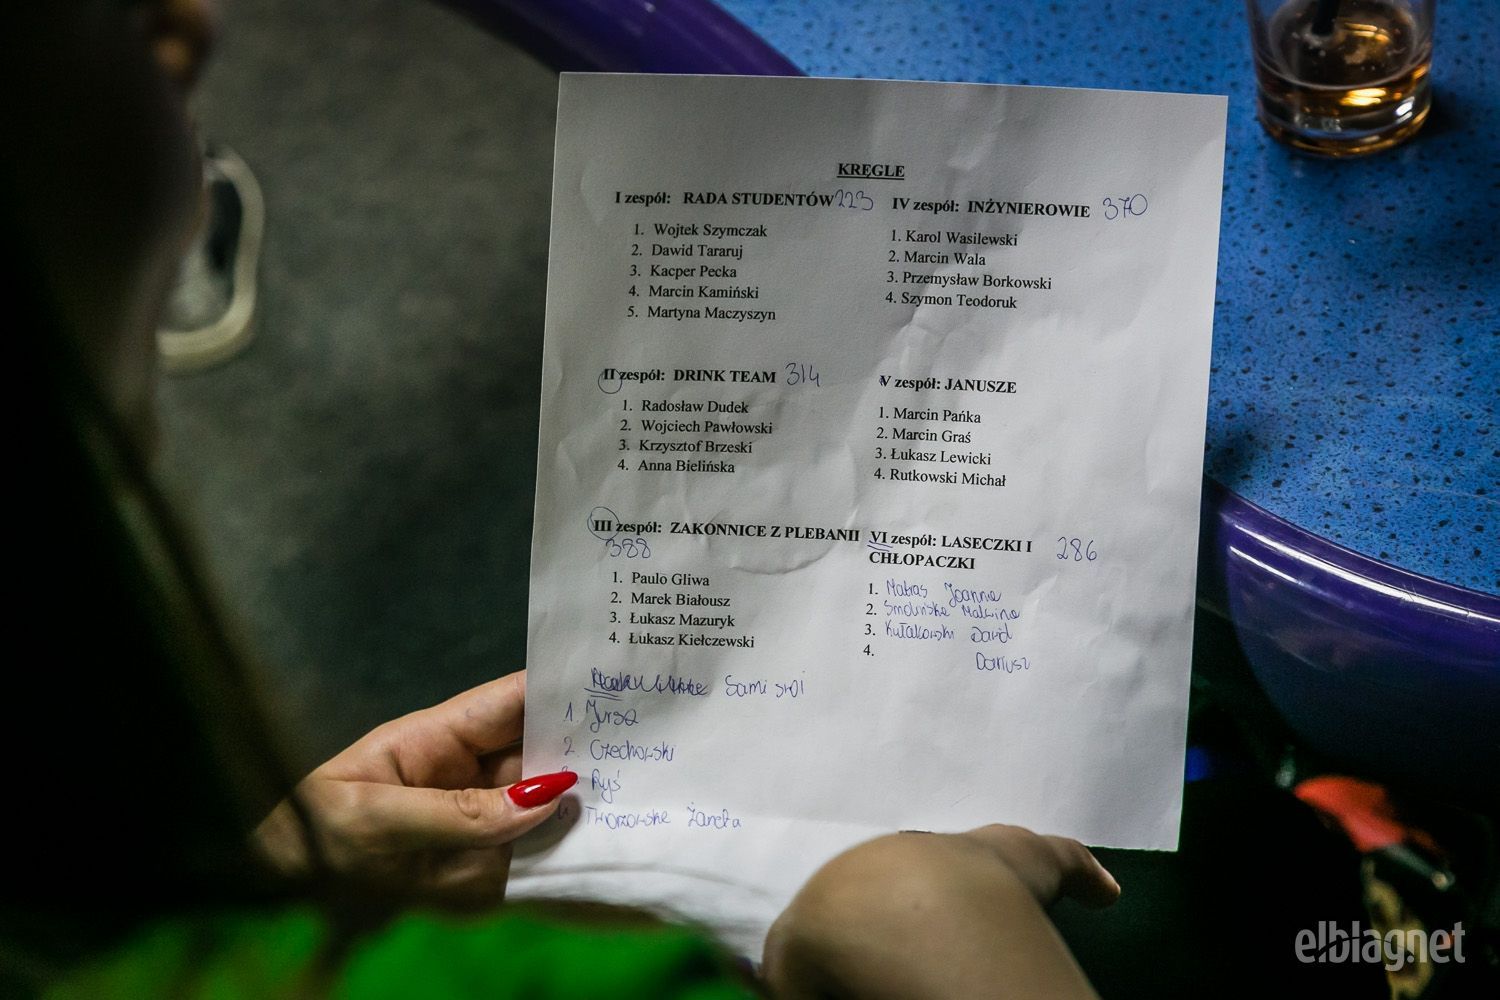 KRĘGLE
I zespół: RADA STUDENTÓW 223
1. Wojtek Szymczak
2. Dawid Tararuj
3. Kacper Pecka
4. Marcin Kamiński
5. Martyna Maczyszyn
II zespół: DRINK TEAM 314
1. Radosław Dudek
2. Wojciech Pawłowski
3. Krzysztof Brzeski
4. Anna Bielińska
III zespół: ZAKONNICE Z PLEBANII
388
1. Paulo Gliwa
2. Marek Białousz
3. Łukasz Mazuryk
4. Łukasz Kiełczewski
Sami swoi
1 Jursza
2. Czechowski
Ryś
Tworzowska Żaneta
IV zespół: INŻYNIEROWIE 370
1. Karol Wasilewski
2. Marcin Wala
3. Przemysław Borkowski
4. Szymon Teodoruk
V zespół: JANUSZE
1. Marcin Pańka
2. Marcin Graś
3. Łukasz Lewicki
4. Rutkowski Michał
VI zespół: LASECZKI I 286
CHŁOPACZKI
1. Matras Joanna
2. Smolińska Malwina
3. Kułakowski Dawid
4. Dariusz
elblag.net